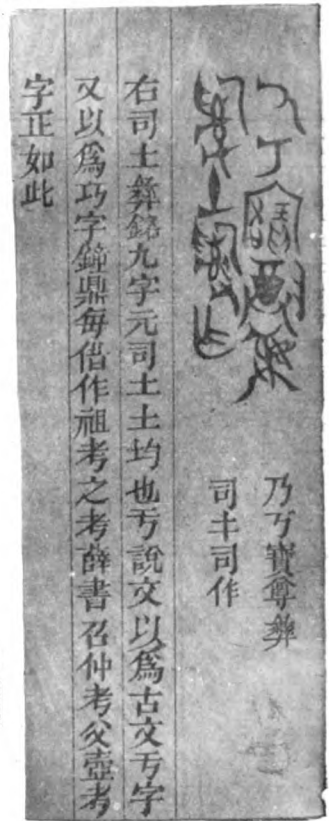 乃丂寶尊彝
司土司作
右司土彝銘九字元司土土均也丂說文以爲古文亏字
又以爲巧字鐘鼎每借作祖考之考薛書召仲考父壺考
字正如此